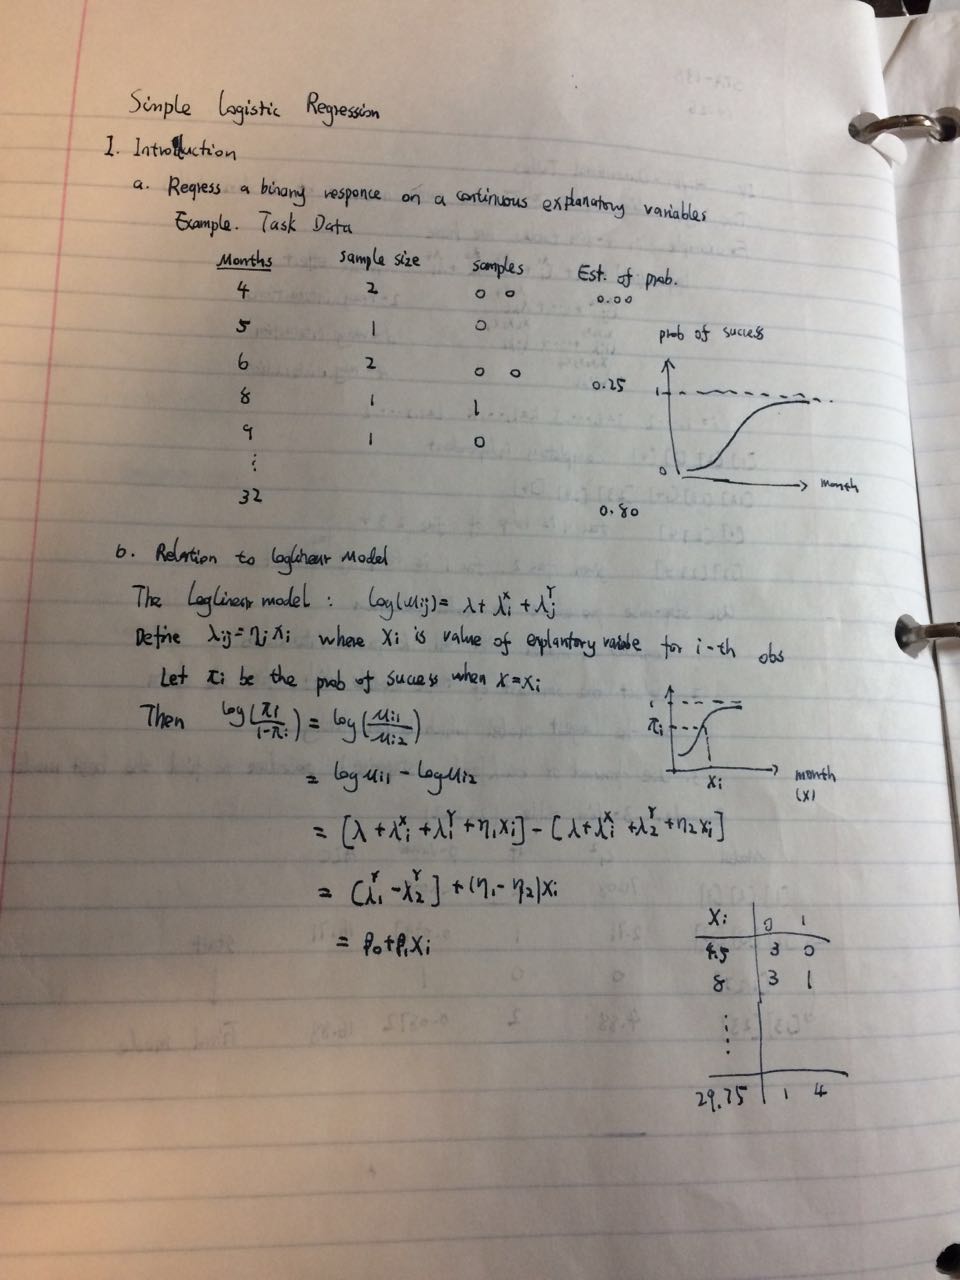 Simple Logistic Regression
1. Introduction
a. Regress a binary responce on a continuous explanatory variables
Example. Task Data
Months sample size samples Est. of prob.
4 2 0 0 0.00
5 1 0
6 2 0 0 0.25
8 1 1
9 1 0
⋮
32 0.80
prob of success
1
0 month
b. Relation to loglinear Model
The Loglinear model : log(μij) = λ + λiˣ + λjʸ
Define λij = ηj xi where xi is value of explantory variable for i-th obs
Let πi be the prob of success when X = xi
Then log(π1/(1-πi)) = log(μi1/μi2)
= log μi1 - log μi2
= [λ + λiˣ + λ1ʸ + η1xi] - [λ + λiˣ + λ2ʸ + η2xi]
= [λ1ʸ - λ2ʸ] + (η1 - η2)xi
= β0 + β1xi
1
πi
xi month
(x)
xi 0 1
4.5 3 0
8 3 1
⋮
29.75 1 4